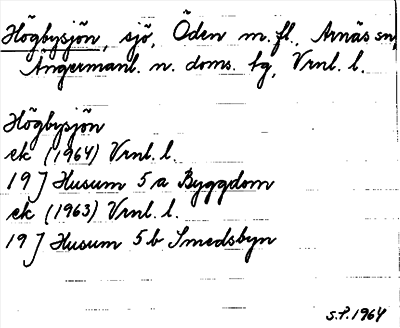 Högbysjön, sjö, Öden m.fl., Arnäs sn,
Ångermanl. n. doms. tg, Vrnl. l.
Högbysjön
ek (1964) Vrnl. l.
19 J Husum 5 a Byggdom
ek (1963) Vrnl. l.
19 J Husum 5 b Smedsbyn
S.P. 1964